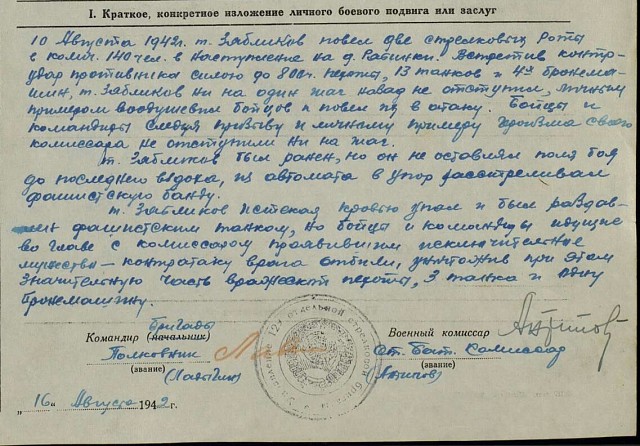 I. Краткое, конкретное изложение личного боевого подвига или заслуг
10 Августа 1942г. т. Зябликов повел две стрелковых роты
в колич. 140 чел. в наступление на д. Рапинки. Встретив контр-
удар противника силою до 800ч. пехоты, 13 танков и 4х бронема-
шин, т. Зябликов ни на один шаг назад не отступил, личным
примером воодушевил бойцов и повел их в атаку. Бойцы и
командиры следуя призыву и личному примеру героизма своего
комиссара не отступили ни на шаг.
т. Зябликов был ранен, но он не оставлял поля боя
до последнего вздоха, из автомата в упор расстреливал
фашистскую банду.
т. Зябликов истекая кровью упал и был раздав-
лен фашистским танком, но бойцы и командиры идущие
во главе с комиссаром проявившим исключительное
мужество – контратаку врага отбили, уничтожив при этом
значительную часть вражеской пехоты, 3 танка и одну
бронемашину.
бригады
Командир (начальник)
Военный комиссар Антипов
Полковник
Ст. Бат. Комиссар
(звание)
(звание)
(Ладыгин)
(Антипов)
"16" Августа 1942г.